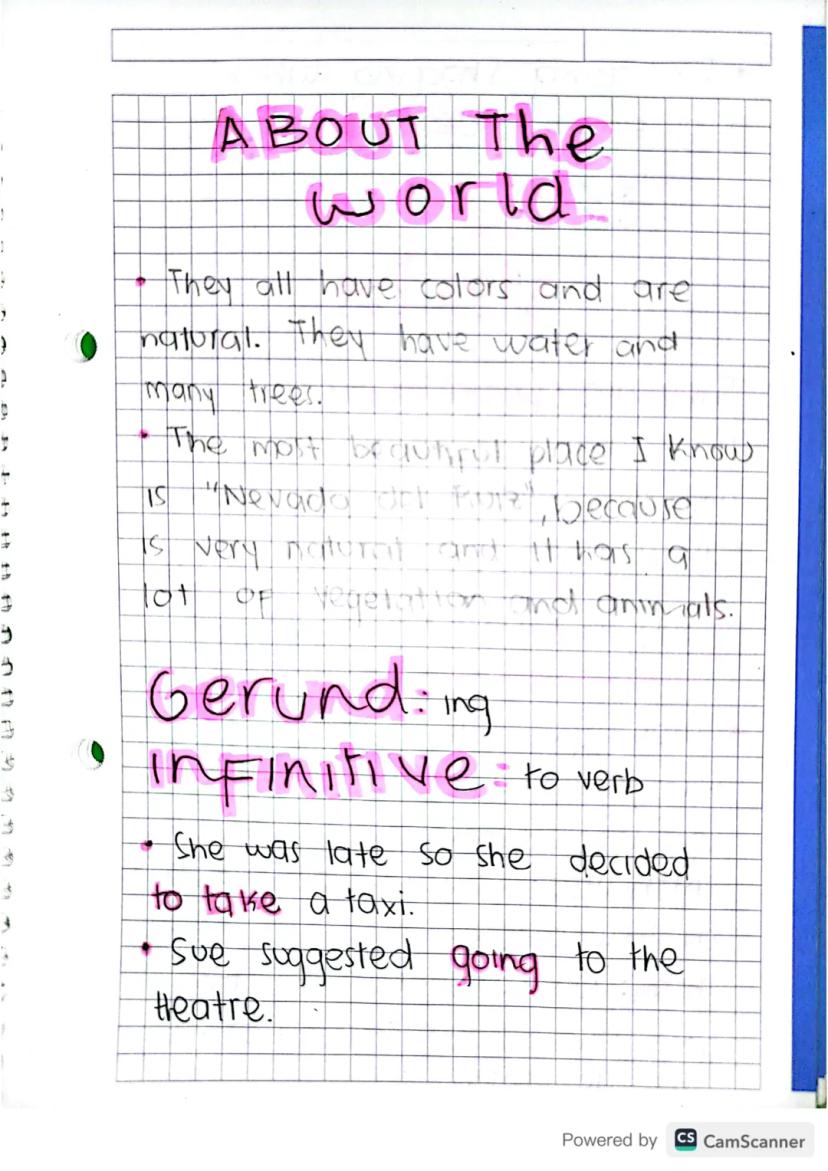 ABOUT The
world
• They all have colors and are
natural. They have water and
many trees.
• The most beautiful place I know
is "Nevado del Ruiz", because
is very natural and it has a
lot of vegetation and animals.
Gerund: ing
infinitive: to verb
• She was late so she decided
to take a taxi.
• Sue suggested going to the
theatre.
Powered by CS CamScanner